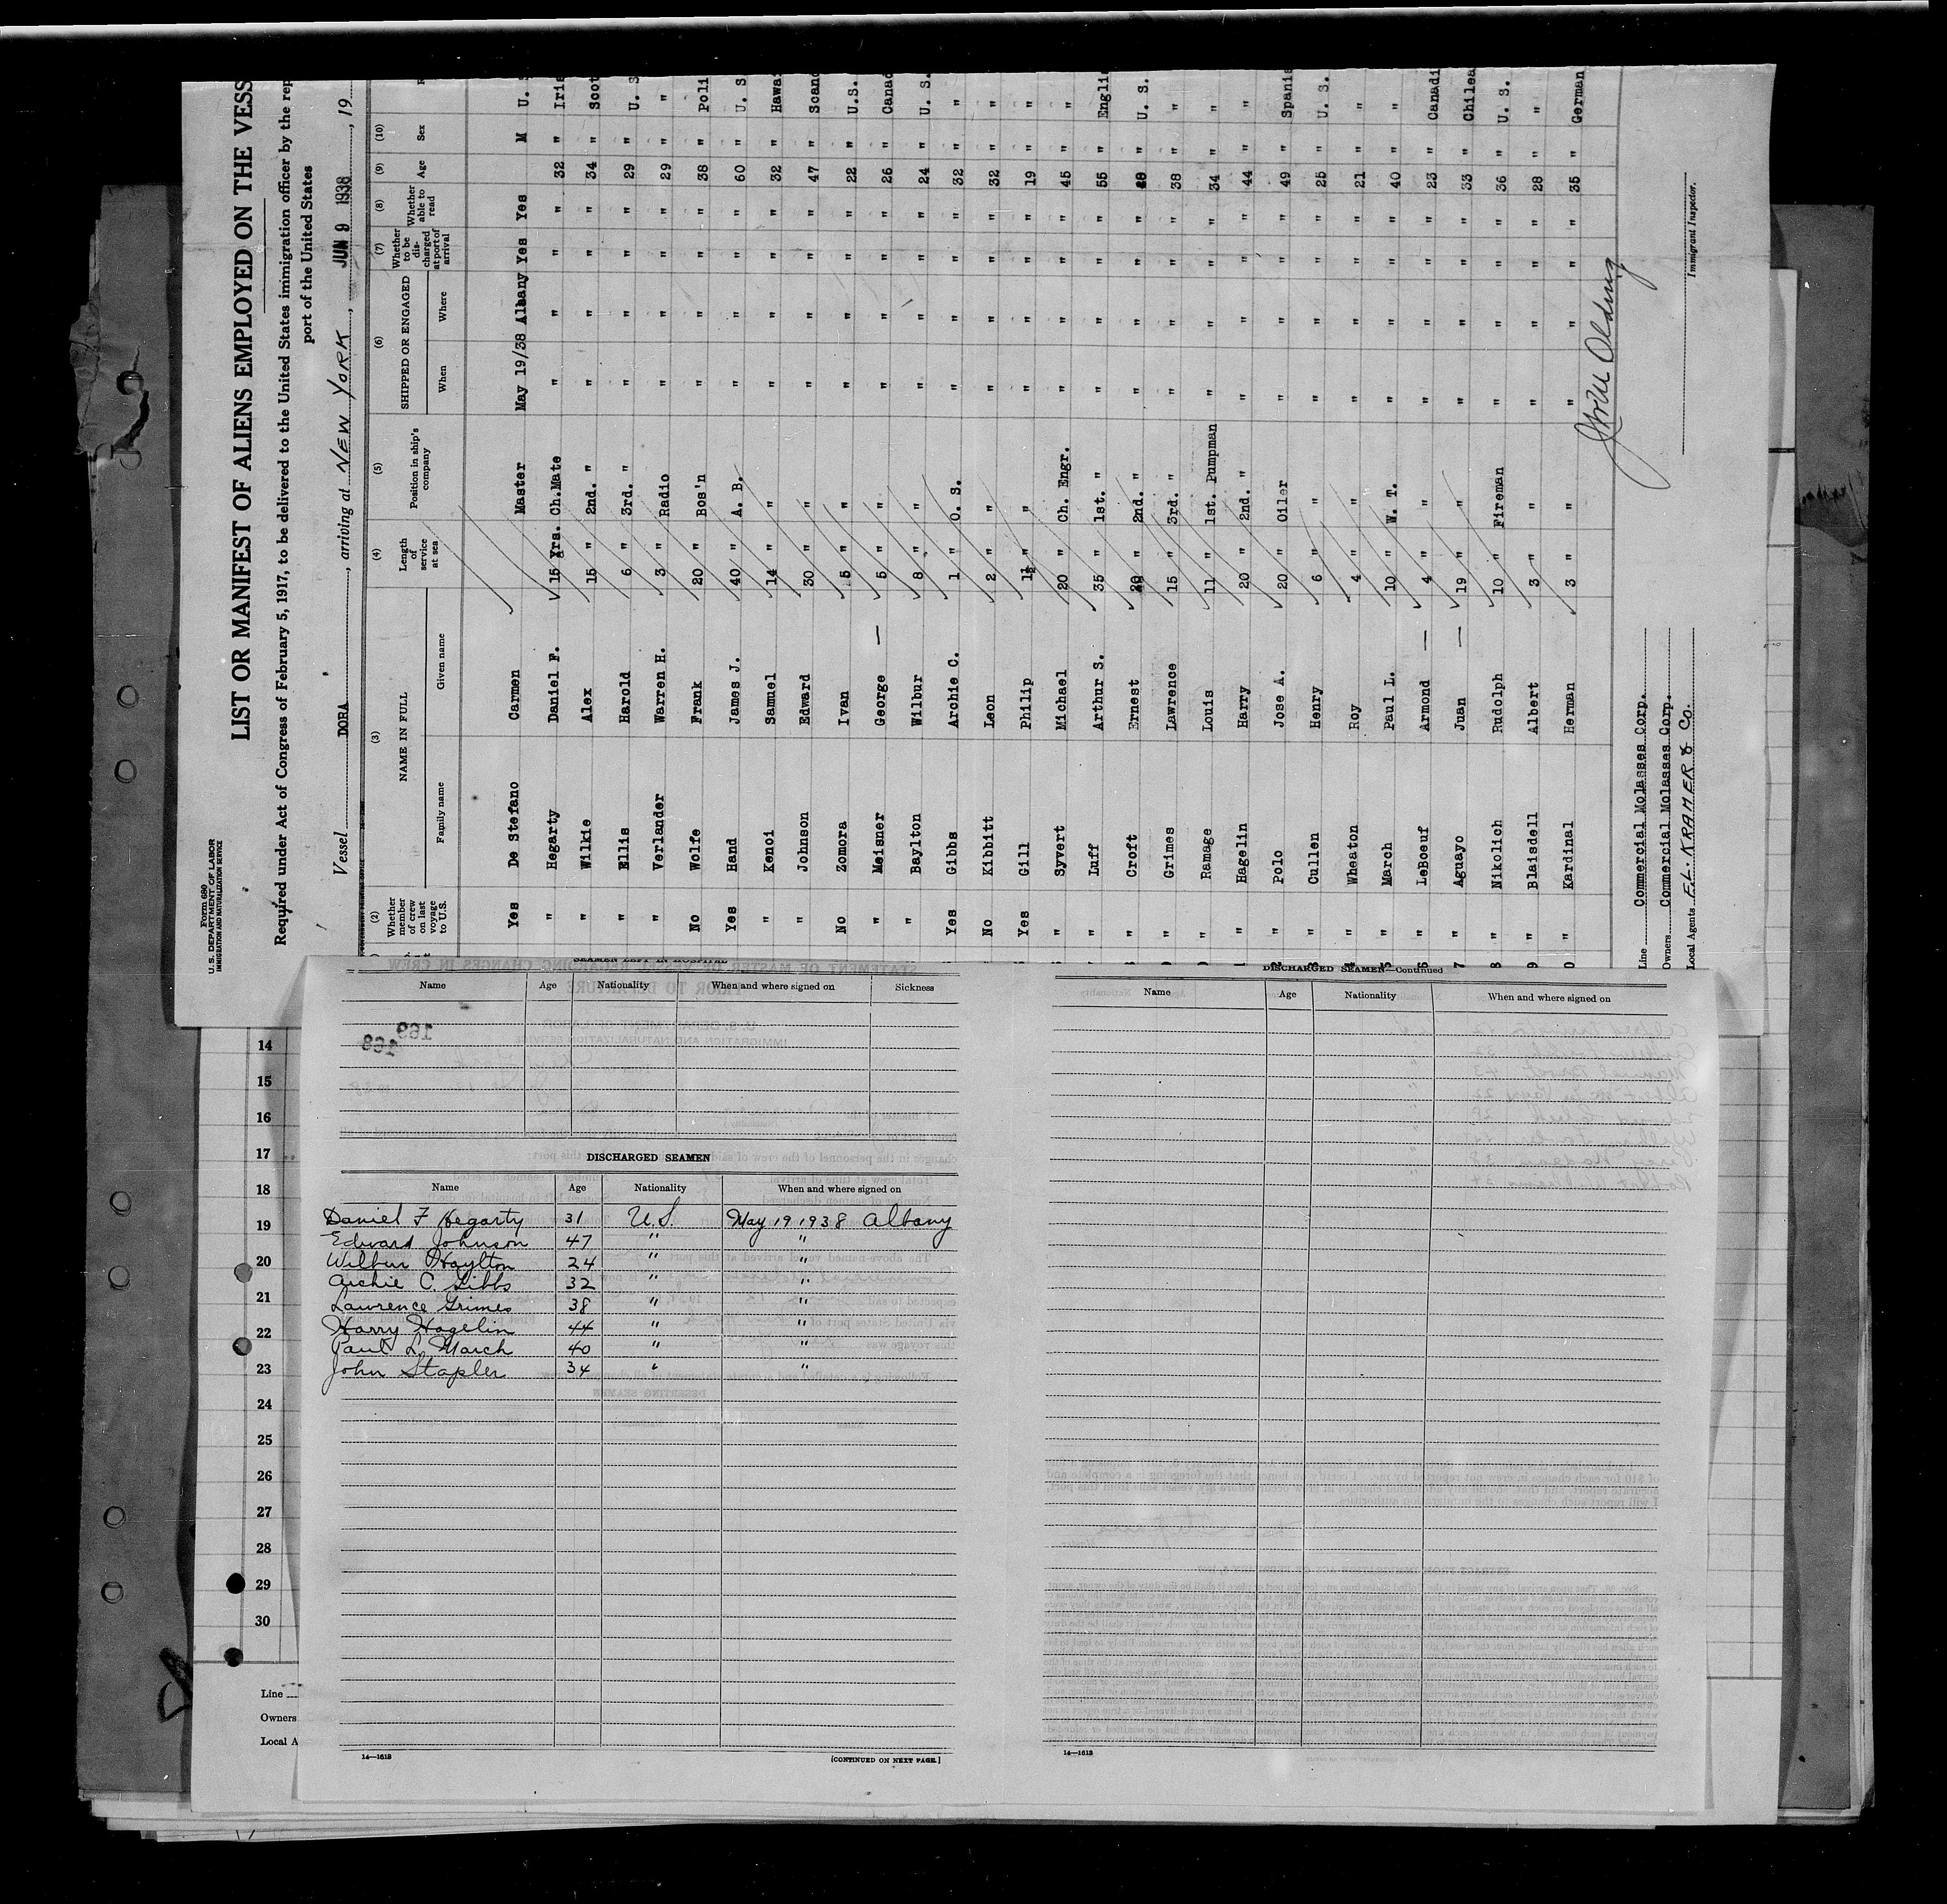 Form 680
U. S. DEPARTMENT OF LABOR
IMMIGRATION AND NATURALIZATION SERVICE
LIST OR MANIFEST OF ALIENS EMPLOYED ON THE VESS
Required under Act of Congress of February 5, 1917, to be delivered to the United States immigration officer by the rep
port of the United States
Vessel DORA, arriving at NEW YORK, JUN 9 1938, 19
(2) (3) (4) (5) (6) (7) (8) (9) (10)
Whether member of crew on last voyage to U.S. NAME IN FULL Family name Given name Length of service at sea Position in ship's company SHIPPED OR ENGAGED When Where Whether to be discharged at port of arrival Whether able to read Age Sex
Yes De Stefano Carmen Master May 19/38 Albany Yes Yes M U.
" Hegarty Daniel F. 15 Yrs. Ch.Mate " " " " 32 " Iris
" Wilkie Alex 15 " 2nd. " " " " " 34 " Scot
" Ellis Harold 6 " 3rd. " " " " " 29 " U. S
" Verlander Warren H. 3 " Radio " " " " 29 " "
No Wolfe Frank 20 " Bos'n " " " " 38 " Poli
Yes Hand James J. 40 " A. B. " " " " 60 " U. S
" Kenoi Samuel 14 " " " " " " 32 " Hawai
" Johnson Edward 30 " " " " " " 47 " Scand
No Zomora Ivan 5 " " " " " " 22 " U.S.
" Meisner George — 5 " " " " " " 26 " Canad
" Baylton Wilbur 8 " " " " " " 24 " U. S.
Yes Gibbs Archie C. 1 " O. S. " " " " 32 " "
No Kibbitt Leon 2 " " " " " " 32 " "
Yes Gill Philip 1½ " " " " " " 19 " "
" Syvert Michael 20 " Ch. Engr. " " " " 45 " "
" Luff Arthur S. 35 " 1st. " " " " " 55 " Engli
" Croft Ernest " 2nd. " " " " " " U. S.
" Grimes Lawrence 15 " 3rd. " " " " " 38 " "
" Ramage Louis 11 " 1st. Pumpman " " " " 34 " "
" Hagelin Harry 20 " 2nd. " " " " " 44 " "
" Polo Jose A. 20 " Oiler " " " " 49 " Spanis
" Cullen Henry 6 " " " " " " 25 " U. S.
" Wheaton Roy 4 " " " " " " 21 " "
" March Paul L. 10 " W. T. " " " " 40 " "
" LeBoeuf Armond — 4 " " " " " " 23 " Canadi
" Aguayo Juan — 19 " " " " " " 33 " Chilea
" Nikolich Rudolph 10 " Fireman " " " " 36 " U. S.
" Blaisdell Albert 3 " " " " " " 28 " "
" Kardinal Herman 3 " " " " " " 35 " German
Line Commercial Molasses Corp.
Owners Commercial Molasses Corp.
Local Agents F.L. KRAMER & CO.
Immigrant Inspector.
SEAMEN LEFT IN HOSPITAL
Name Age Nationality When and where signed on Sickness
168
169
DISCHARGED SEAMEN
Name Age Nationality When and where signed on
Daniel F Hegarty 31 U.S. May 19 1938 Albany
Edward Johnson 47 " "
Wilbur Haylton 24 " "
Archie C. Gibbs 32 " "
Lawrence Grimes 38 " "
Harry Hagelin 44 " "
Paul L. March 40 " "
John Stapler 34 " "
14—1613
[CONTINUED ON NEXT PAGE.]
DISCHARGED SEAMEN—Continued
Name Age Nationality When and where signed on
14—1613
14
15
16
17
18
19
20
21
22
23
24
25
26
27
28
29
30
Line
Owners
Local A